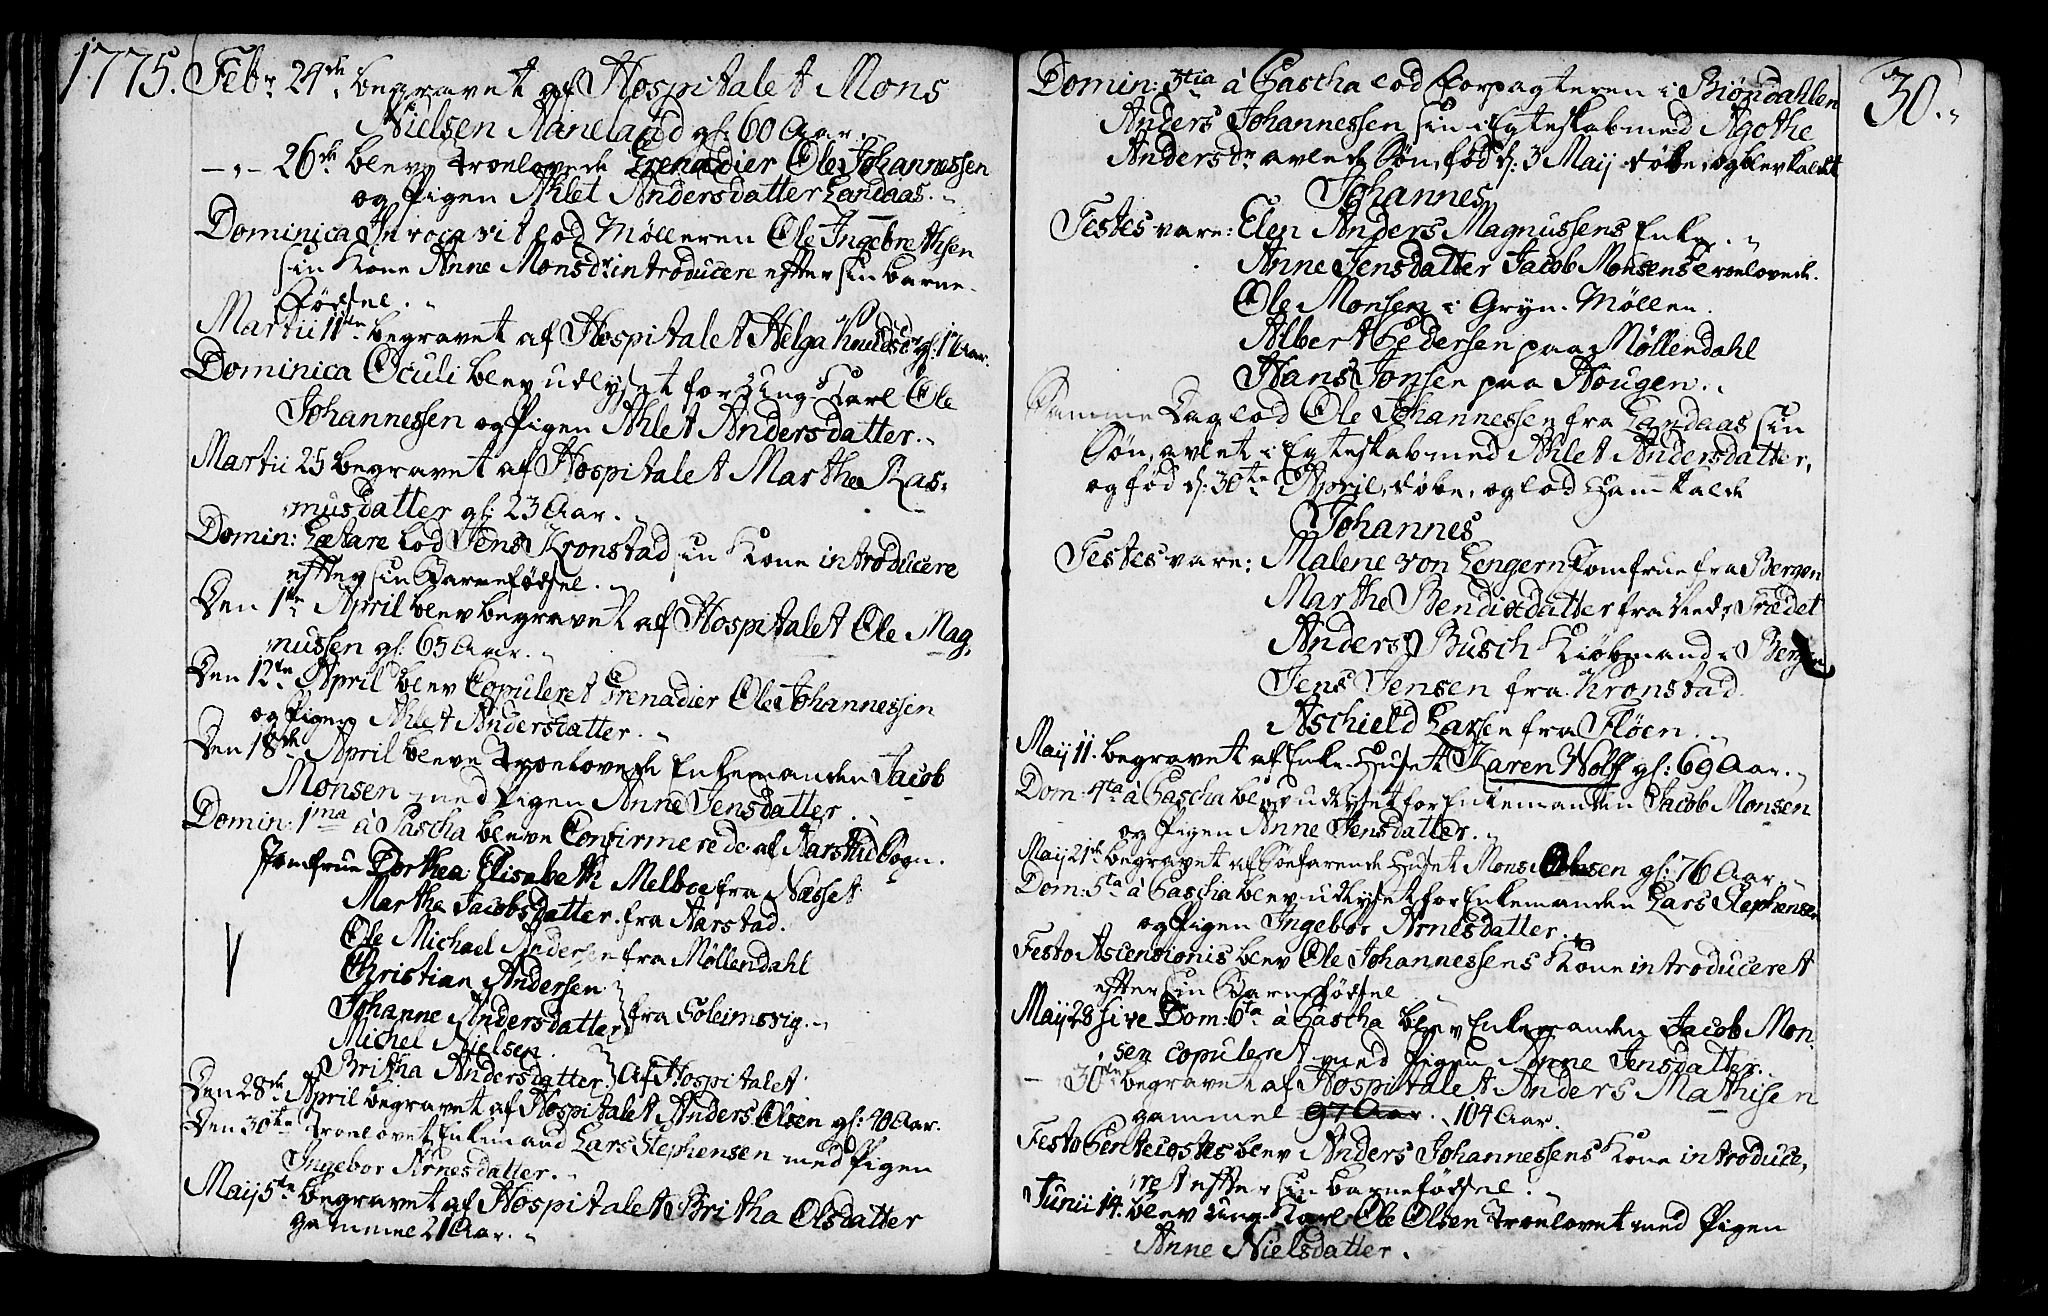 1775. Febr 24de begravet af Hospitalet Mons
Nielsen Naneland gl: 60 Aar.
— „ — 26de bleve Troelovede Grenadier Ole Johannessen
og Pigen Ahlet Andersdatter Landaas.
Dominica Invocavit lod Mølleren Ole Ingebrethsen
sin Kone Anne Monsdr introducere efter sin Barne-
fødsel.
Martii 11te begravet af Hospitalet Helga Knudsdr gl: Aar.
Dominica Oculi blev udlyst for Ung Karl Ole
Johannessen og Pigen Ahlet Andersdatter.
Martii 25 begravet af Hospitalet Marthe Ras-
musdatter gl: 23 Aar.
Domin: Lætare lod Jens Kronstad sin Kone introducere
efter sin Barnefødsel.
Den 1te April blev begravet af Hospitalet Ole Mag-
nussen gl: 65 Aar.
Den 12te April blev Copuleret Grenadier Ole Johannessen
og Pigen Ahlet Andersdatter.
Den 18de April bleve Troelovede Enkemanden Jacob
Monsen med Pigen Anne Jensdatter.
Domin: 1ma à Pascha bleve Confirmerede af Aarstad Sogn.
Jomfrue Dorthea Elisabeth Melboe fra Næsset
Marthe Jacobsdatter fra Aarstad.
Ole Michael Andersen fra Møllendahl
Christian Andersen
Johanne Andersdatter } fra Soleimsvig.
Michel Nielsen
Britha Andersdatter } af Hospitalet
Den 28de April begravet af Hospitalet Anders Olsen gl: 70 Aar.
Den 30te Troelovet Enkemand Lars Stephensen med Pigen
Ingebor Arnesdatter.
Maij 5te begravet af Hospitalet Britha Olsdatter
gammel 21 Aar.
30.
Domin: 3tia à Pascha lod Forpagteren i Biøndahlen
Anders Johannessen sin i Egteskab med Agothe
Andersdr avlede Søn, fød d: 3 Maij døbe, og blev kaldet
Johannes
Testes vare: Elen Anders Magnussens Enke.
Anne Jensdatter Jacob Monsens troelovede.
Ole Monsen i Gryn-Møllen.
Albert Pedersen paa Møllendahl
Hans Jonsen paa Hougen.
Samme Dag lod Ole Johannessen fra Landaas sin
Søn, avlet i Egteskab med Ahlet Andersdatter,
og fød d: 30te April, døbe, og lod ham kalde
Johannes
Testes vare: Malene von Lengern Jomfrue fra Bergen
Marthe Bendixdatter fra Stædet
Anders Busch Kiøbmand i Bergen
Jens Jensen fra Kronstad.
Aschield Larsen fra Fløen.
Maij 11. begravet af Enke-Huset Karen Wolff gl: 69 Aar.
Dom: 4ta à Pascha blev udlyset for Enkemanden Jacob Monsen
og Pigen Anne Jensdatter.
Maij 21de begravet af Søefarende Huset Mons Olsen gl: 76 Aar.
Dom: 5ta à Pascha blev udlyset for Enkemanden Lars Stephensen
og Pigen Ingebor Arnesdatter.
Festo Ascensionis blev Ole Johannessens Kone introduceret
efter sin Barnefødsel
Maij 28 sive Dom: 6ta à Pascha blev Enkemanden Jacob Mon-
sen copuleret med Pigen Anne Jensdatter.
— 30te begravet af Hospitalet Anders Mathisen
gammel 97 Aar. 104 Aar.
Festo Pentecostes blev Anders Johannessens Kone introduce-
ret efter sin Barnefødsel.
Junii 14. blev Ung Karl Ole Olsen Troelovet med Pigen
Anne Nielsdatter.